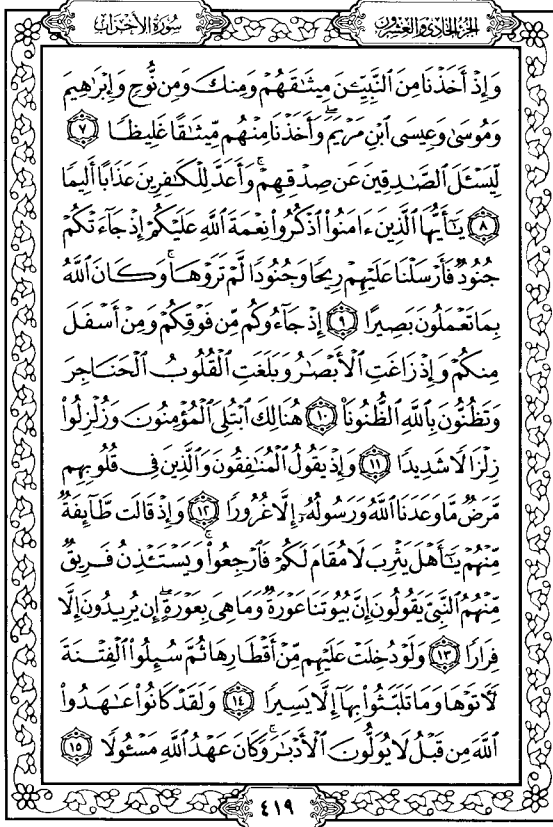 سُورَةُ الأَحْزَابِ
الجُزْءُ الحَادِى وَالعِشْرُونَ
وَإِذْ أَخَذْنَا مِنَ ٱلنَّبِيِّـۧنَ مِيثَـٰقَهُمْ وَمِنكَ وَمِن نُّوحٍ وَإِبْرَٰهِيمَ
وَمُوسَىٰ وَعِيسَى ٱبْنِ مَرْيَمَ ۖ وَأَخَذْنَا مِنْهُم مِّيثَـٰقًا غَلِيظًا ٧
لِّيَسْـَٔلَ ٱلصَّـٰدِقِينَ عَن صِدْقِهِمْ ۚ وَأَعَدَّ لِلْكَـٰفِرِينَ عَذَابًا أَلِيمًا
٨ يَـٰٓأَيُّهَا ٱلَّذِينَ ءَامَنُوا۟ ٱذْكُرُوا۟ نِعْمَةَ ٱللَّهِ عَلَيْكُمْ إِذْ جَآءَتْكُمْ
جُنُودٌ فَأَرْسَلْنَا عَلَيْهِمْ رِيحًا وَجُنُودًا لَّمْ تَرَوْهَا ۚ وَكَانَ ٱللَّهُ
بِمَا تَعْمَلُونَ بَصِيرًا ٩ إِذْ جَآءُوكُم مِّن فَوْقِكُمْ وَمِنْ أَسْفَلَ
مِنكُمْ وَإِذْ زَاغَتِ ٱلْأَبْصَـٰرُ وَبَلَغَتِ ٱلْقُلُوبُ ٱلْحَنَاجِرَ
وَتَظُنُّونَ بِٱللَّهِ ٱلظُّنُونَا۠ ١٠ هُنَالِكَ ٱبْتُلِىَ ٱلْمُؤْمِنُونَ وَزُلْزِلُوا۟
زِلْزَالًا شَدِيدًا ١١ وَإِذْ يَقُولُ ٱلْمُنَـٰفِقُونَ وَٱلَّذِينَ فِى قُلُوبِهِم
مَّرَضٌ مَّا وَعَدَنَا ٱللَّهُ وَرَسُولُهُۥٓ إِلَّا غُرُورًا ١٢ وَإِذْ قَالَت طَّآئِفَةٌ
مِّنْهُمْ يَـٰٓأَهْلَ يَثْرِبَ لَا مُقَامَ لَكُمْ فَٱرْجِعُوا۟ ۚ وَيَسْتَـْٔذِنُ فَرِيقٌ
مِّنْهُمُ ٱلنَّبِىَّ يَقُولُونَ إِنَّ بُيُوتَنَا عَوْرَةٌ وَمَا هِىَ بِعَوْرَةٍ ۖ إِن يُرِيدُونَ إِلَّا
فِرَارًا ١٣ وَلَوْ دُخِلَتْ عَلَيْهِم مِّنْ أَقْطَارِهَا ثُمَّ سُئِلُوا۟ ٱلْفِتْنَةَ
لَـَٔاتَوْهَا وَمَا تَلَبَّثُوا۟ بِهَآ إِلَّا يَسِيرًا ١٤ وَلَقَدْ كَانُوا۟ عَـٰهَدُوا۟
ٱللَّهَ مِن قَبْلُ لَا يُوَلُّونَ ٱلْأَدْبَـٰرَ ۚ وَكَانَ عَهْدُ ٱللَّهِ مَسْـُٔولًا ١٥
٤١٩